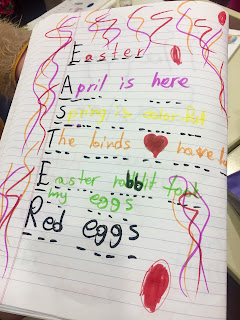 Easter
April is here
Spring is
The birds have
Easter rabblit
my eggs
Red eggs